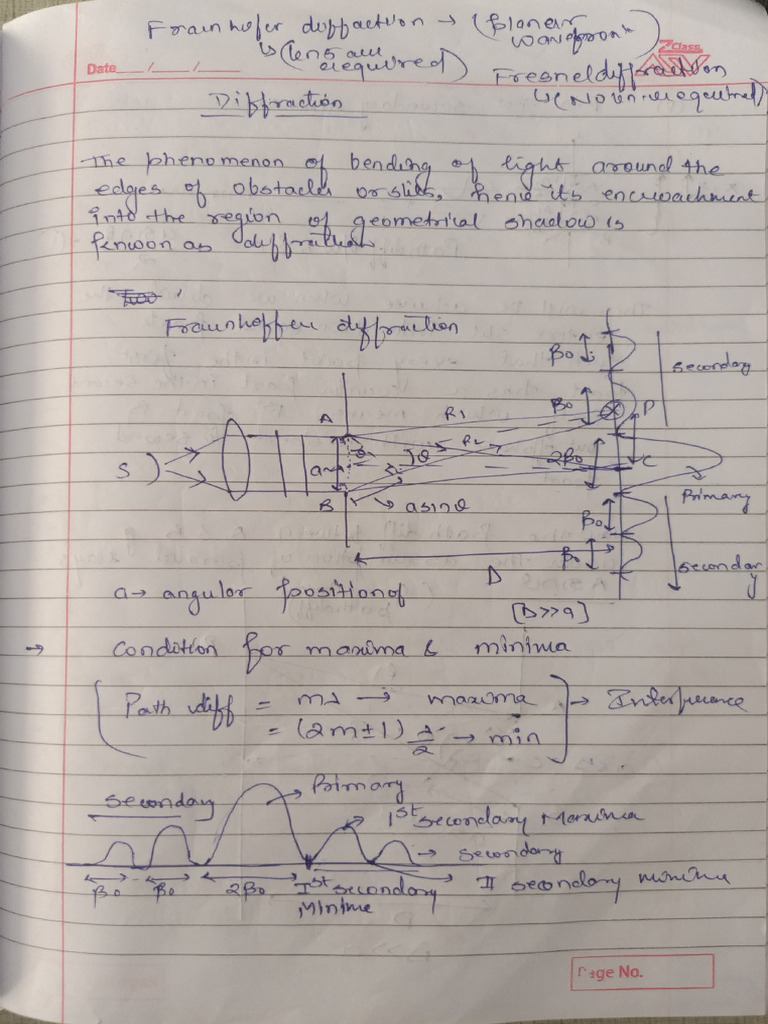 Fraunhofer diffraction → (Planar wavefront)
↳ (lens are required)
Fresnel diffraction
↳ (No lens required)
Z Class
Date ___/___/___
Diffraction
The phenomenon of bending of light around the
edges of obstacles or slits, hence its encroachment
into the region of geometrical shadow is
known as diffraction.
Fraunhoffer diffraction
β0
secondary
A
R1
β0
P
S
a
θ
θ
R2
2β0
C
B
a sinθ
Primary
β0
β0
D
secondary
a → angular position of
[D>>a]
→ Condition for maxima & minima
Path diff = mλ → maxima
= (2m±1) λ/2 → min
→ Interference
secondary
Primary
1st secondary Maxima
→ secondary
β0 β0 2β0 Ist secondary Minima
II secondary minima
Page No.